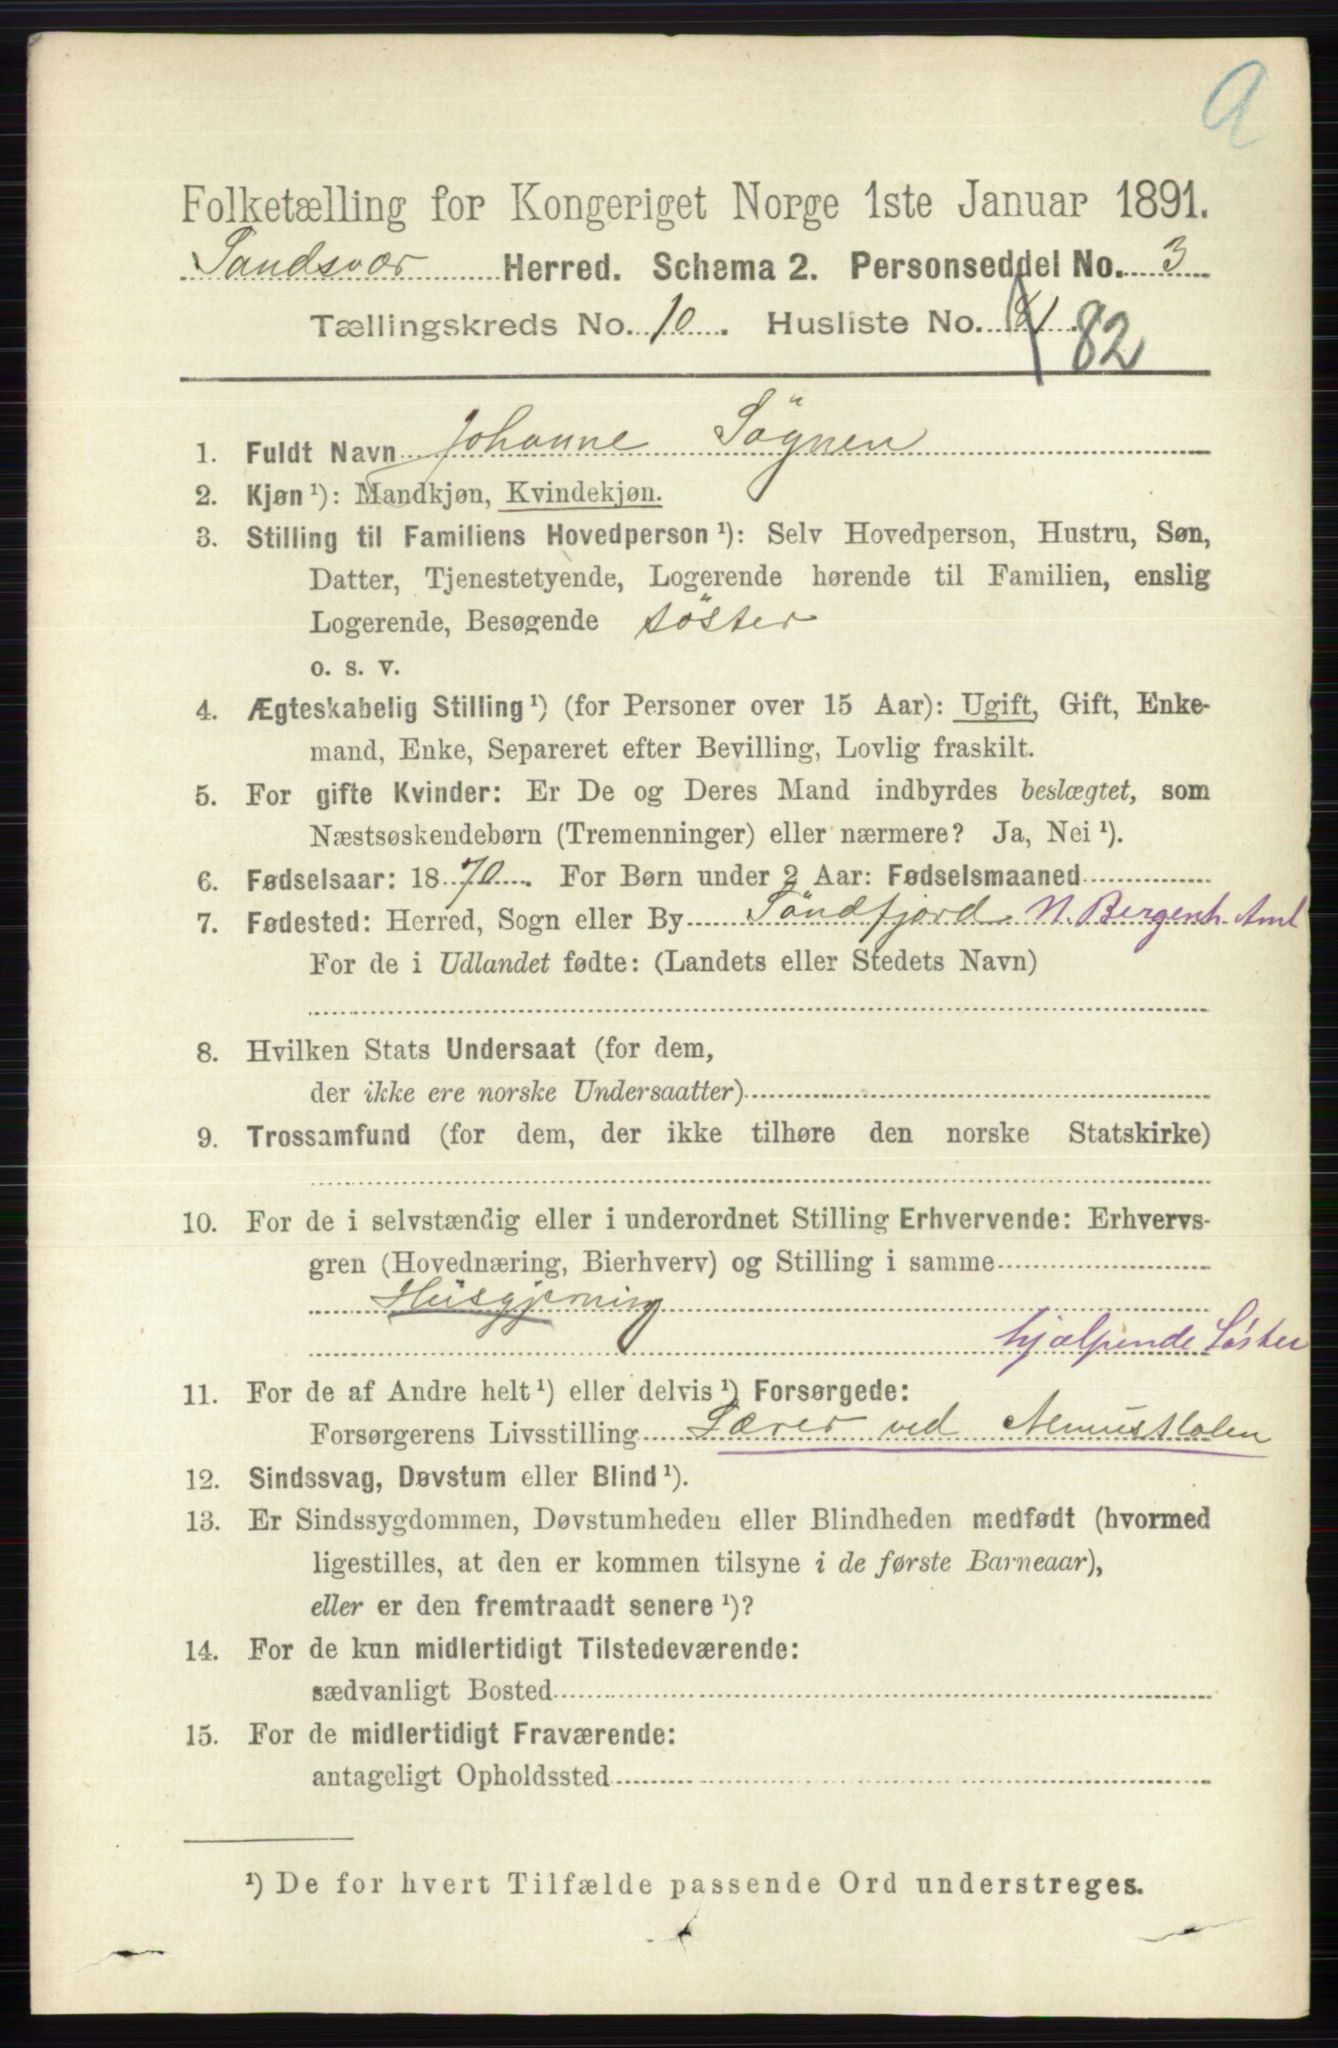 a
Folketælling for Kongeriget Norge 1ste Januar 1891.
Sandsvær Herred. Schema 2. Personseddel No. 3
Tællingskreds No. 10. Husliste No. 81. 82
1. Fuldt Navn Johanne Sögnen
2. Kjøn ¹): Mandkjøn, Kvindekjøn.
3. Stilling til Familiens Hovedperson ¹): Selv Hovedperson, Hustru, Søn,
Datter, Tjenestetyende, Logerende hørende til Familien, enslig
Logerende, Besøgende söster
o. s. v.
4. Ægteskabelig Stilling ¹) (for Personer over 15 Aar): Ugift, Gift, Enke-
mand, Enke, Separeret efter Bevilling, Lovlig fraskilt.
5. For gifte Kvinder: Er De og Deres Mand indbyrdes beslægtet, som
Næstsøskendebørn (Tremenninger) eller nærmere? Ja, Nei ¹).
6. Fødselsaar: 1870. For Børn under 2 Aar: Fødselsmaaned
7. Fødested: Herred, Sogn eller By Söndfjord N. Bergenh. Amt
For de i Udlandet fødte: (Landets eller Stedets Navn)
8. Hvilken Stats Undersaat (for dem,
der ikke ere norske Undersaatter)
9. Trossamfund (for dem, der ikke tilhøre den norske Statskirke)
10. For de i selvstændig eller i underordnet Stilling Erhvervende: Erhvervs-
gren (Hovednæring, Bierhverv) og Stilling i samme
Husgjerning
hjælpende Søster
11. For de af Andre helt ¹) eller delvis ¹) Forsørgede:
Forsørgerens Livsstilling Lærer ved Almueskolen
12. Sindssvag, Døvstum eller Blind ¹).
13. Er Sindssygdommen, Døvstumheden eller Blindheden medfødt (hvormed
ligestilles, at den er kommen tilsyne i de første Barneaar),
eller er den fremtraadt senere ¹)?
14. For de kun midlertidigt Tilstedeværende:
sædvanligt Bosted
15. For de midlertidigt Fraværende:
antageligt Opholdssted
¹) De for hvert Tilfælde passende Ord understreges.